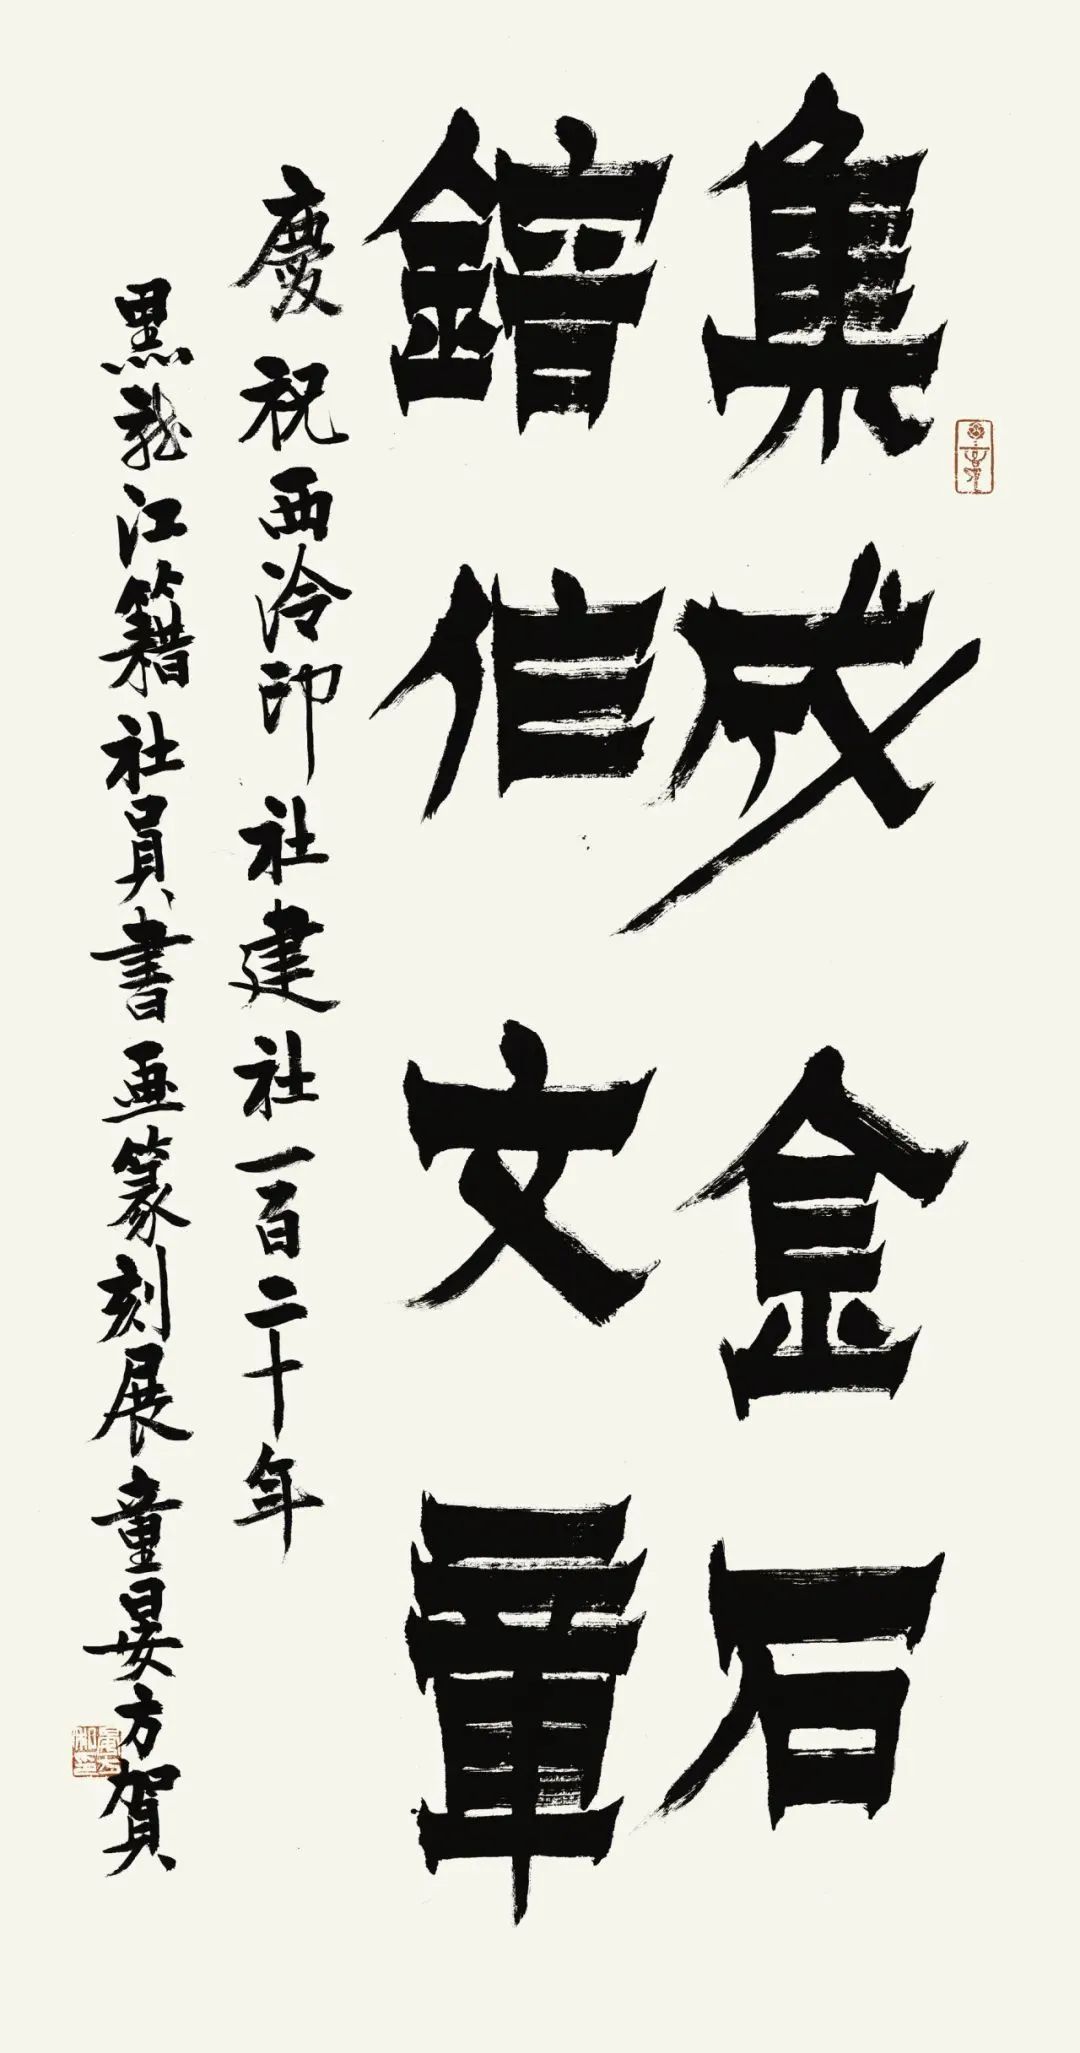 集成金石
信文章
慶祝西泠印社建社一百二十年
黑龍江籍社員書画篆刻展童晏方賀